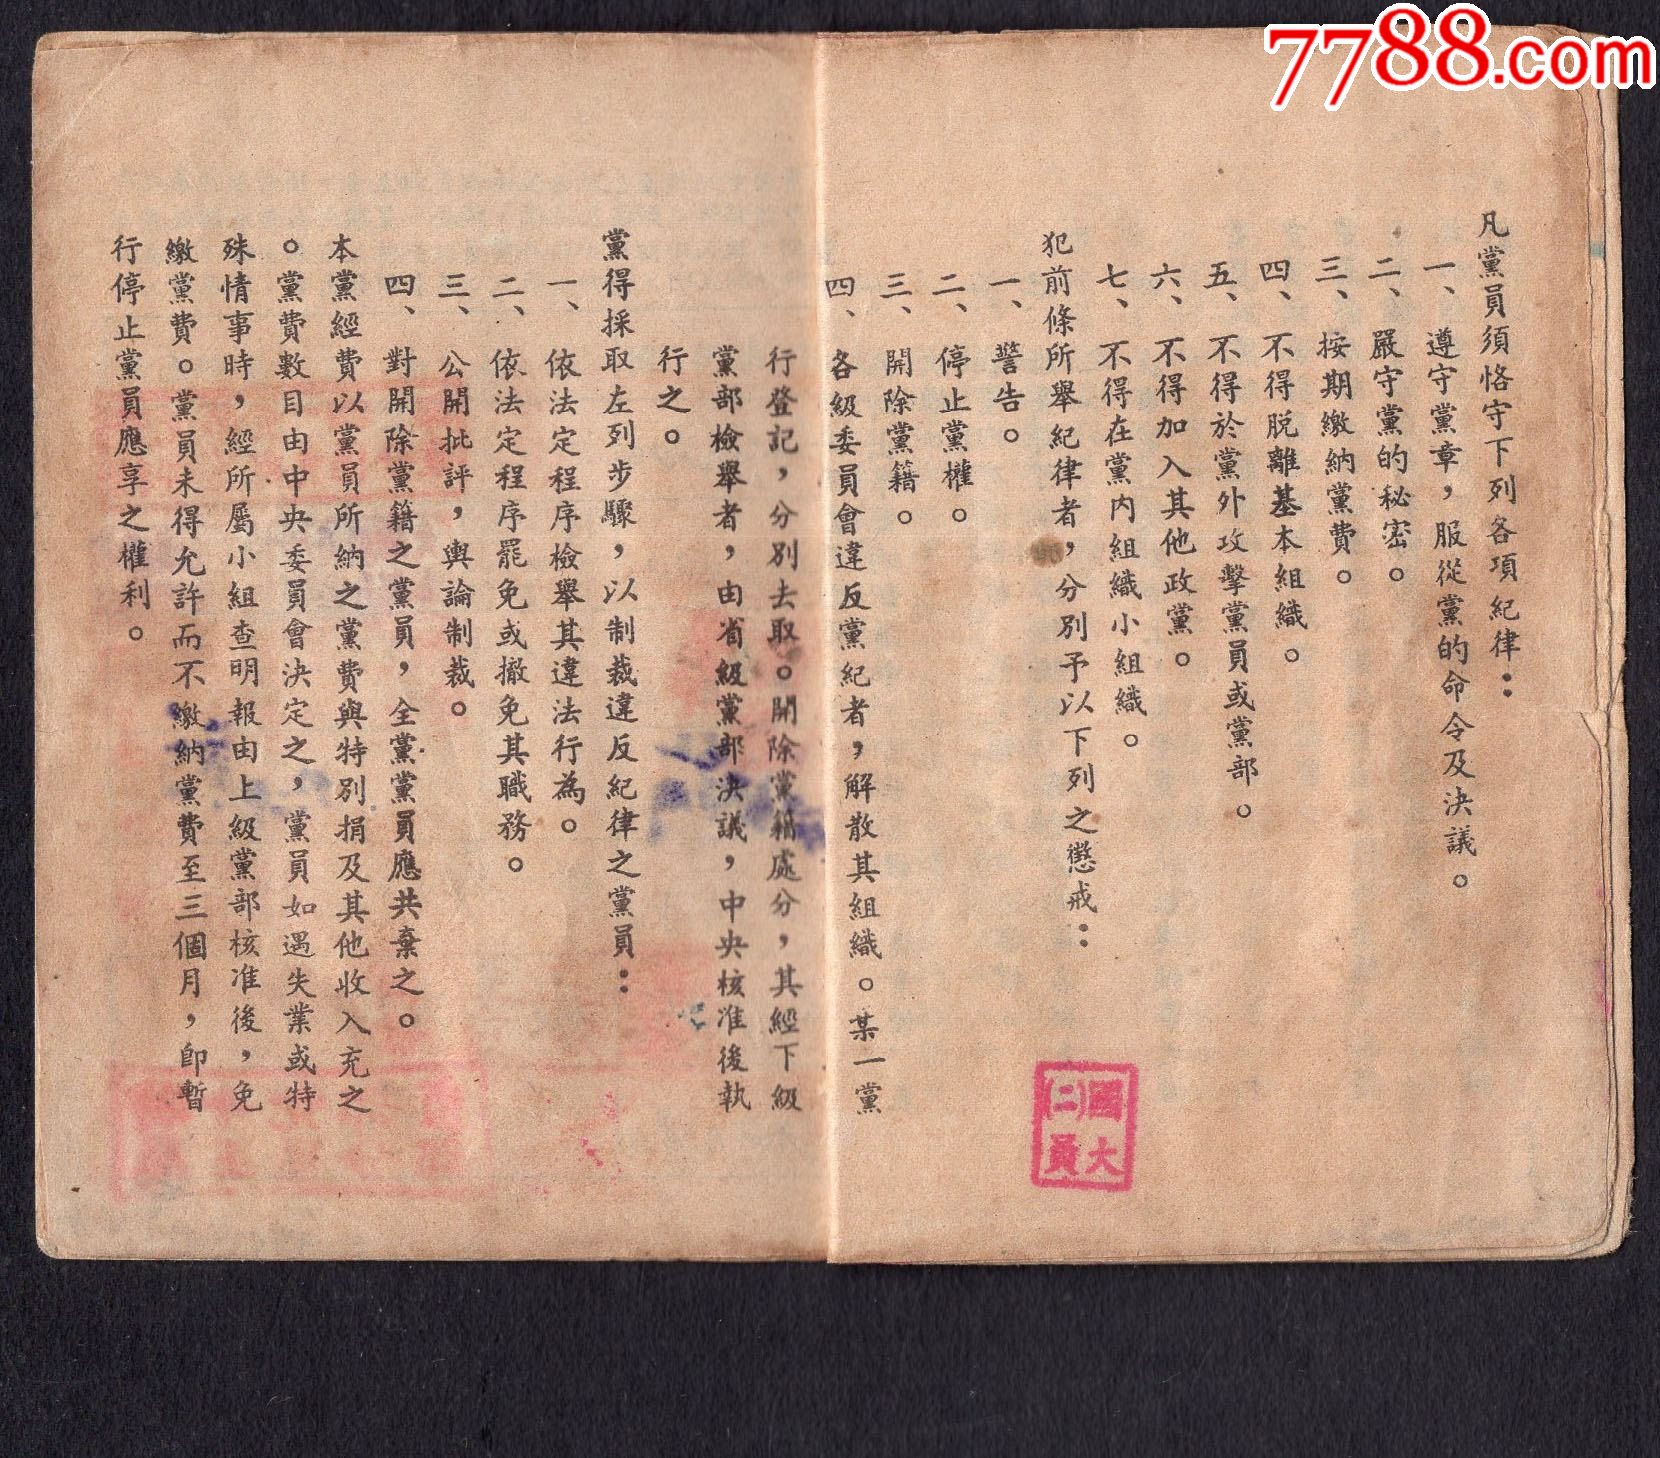 7788.com
凡黨員須恪守下列各項紀律：
一、遵守黨章，服從黨的命令及決議。
二、嚴守黨的秘密。
三、按期繳納黨費。
四、不得脱離基本組織。
五、不得於黨外攻擊黨員或黨部。
六、不得加入其他政黨。
七、不得在黨内組織小組織。
犯前條所舉紀律者，分別予以下列之懲戒：
一、警告。
二、停止黨權。
三、開除黨籍。
四、各級委員會違反黨紀者，解散其組織。某一黨
行登記，分別去取。開除黨籍處分，其經下級
黨部檢舉者，由省級黨部決議，中央核准後執
行之。
黨得採取左列步驟，以制裁違反紀律之黨員：
一、依法定程序檢舉其違法行為。
二、依法定程序罷免或撤免其職務。
三、公開批評，輿論制裁。
四、對開除黨籍之黨員，全黨黨員應共棄之。
本黨經費以黨員所納之黨費與特別捐及其他收入充之
。黨費數目由中央委員會決定之，黨員如遇失業或特
殊情事時，經所屬小組查明報由上級黨部核准後，免
繳黨費。黨員未得允許而不繳納黨費至三個月，卽暫
行停止黨員應享之權利。
國大
㈡員